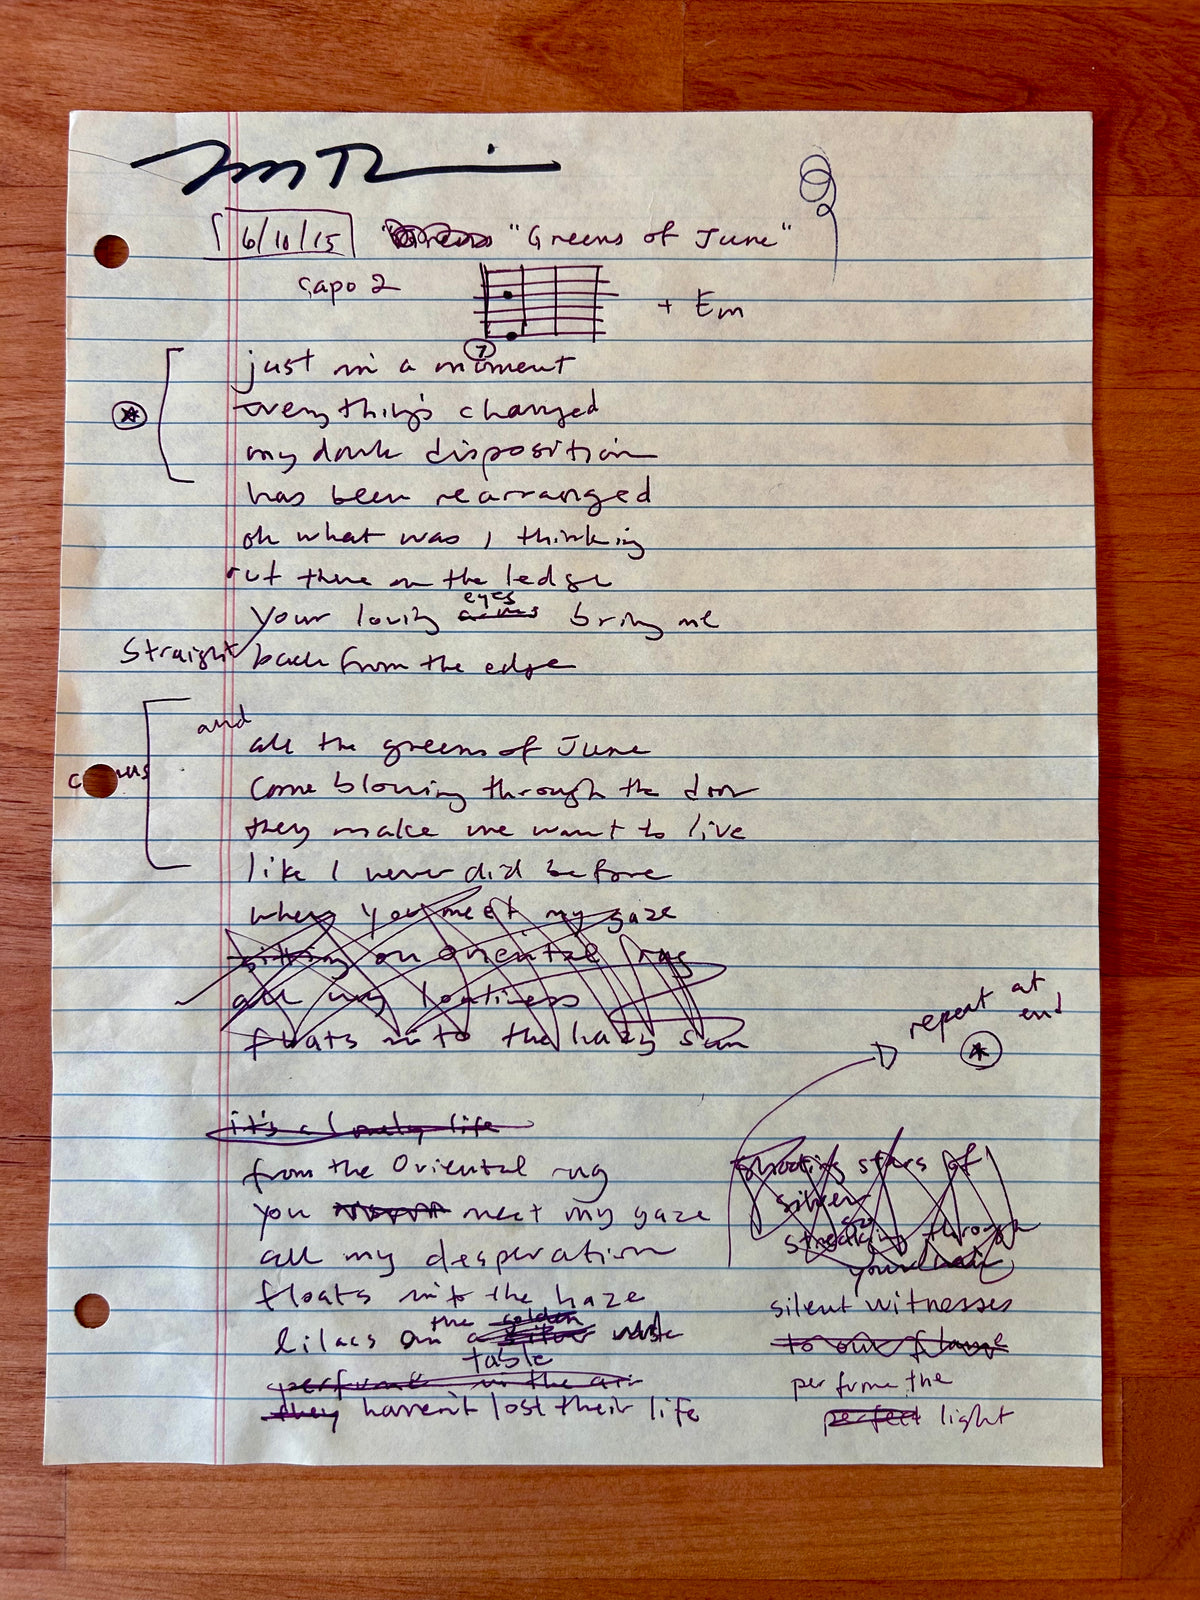 6/10/15 "Greens of June"
capo 2
+ Em
7
just in a moment
everything's changed
my dark disposition
has been rearranged
oh what was I thinking
out there on the ledge
eyes
your loving arms bring me
straight back from the edge
and
all the greens of June
chorus
come blowing through the door
they make me want to live
like I never did before
when you meet my gaze
sitting on oriental rug
all my
floats into the hazy sun
repeat at
end
it's a lonely life
from the Oriental rug
you meet my gaze
all my desperation
floats into the haze
the golden
lilacs on a
table
perfume in the air
they haven't lost their life
shooting stars of
silver
streaking through
your hair
silent witnesses
to our flame
perfume the
perfect light